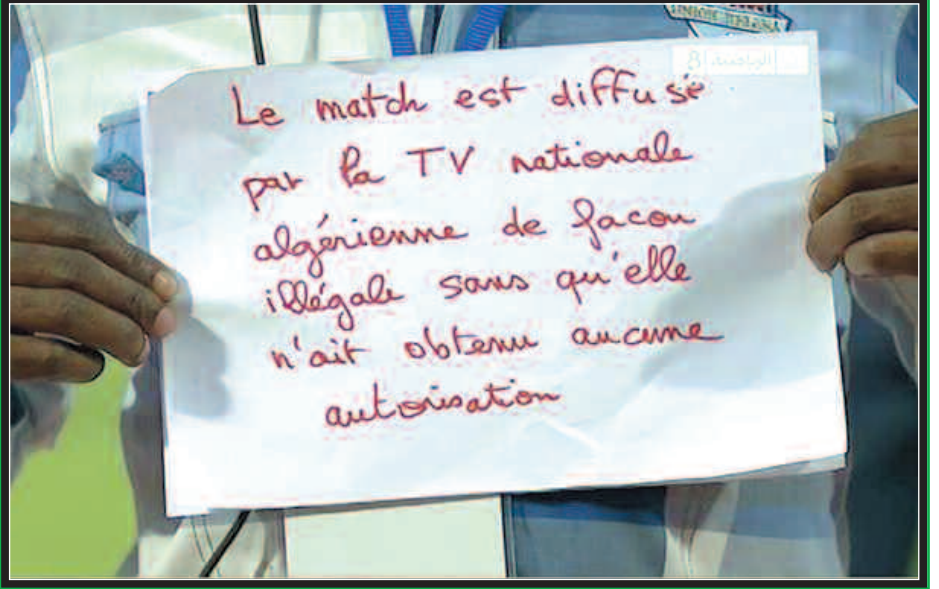 الرياضية 8
Le match est diffusé
par la TV nationale
algérienne de facon
illégale sans qu'elle
n'ait obtenu aucune
autorisation